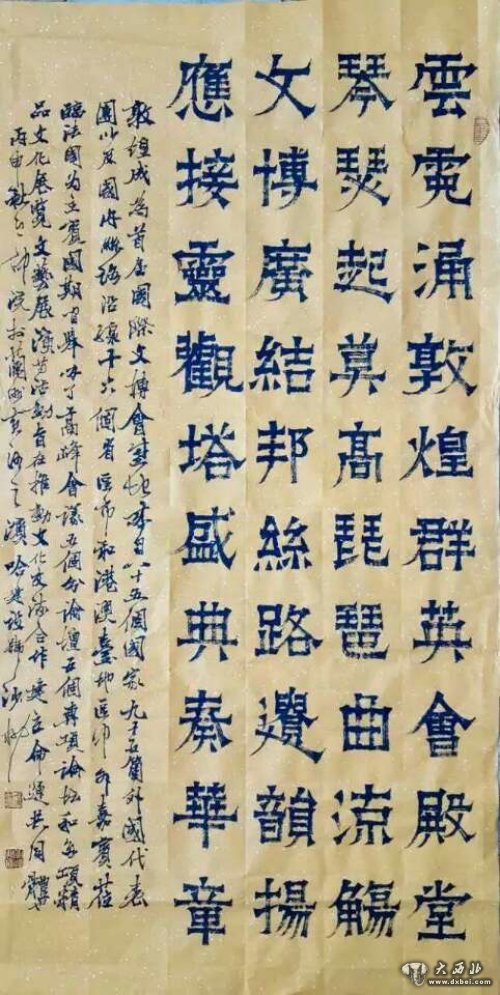 雲霓涌敦煌群英會殿堂
琴瑟起莫高琵琶曲流觴
文博廣結邦絲路邊韻揚
應接靈觀塔盛典奏華章
敦煌成為首屆國際文博會 八十五個國家九十五箇外國代表
團以及國內 沿線十六個省區市和港澳臺地區 嘉賓蒞
臨法國為主賓國期間舉 了高峰會議五個分論壇五個專項論壇和 項精
品文化展覽文藝展演 活動旨在推動文化交流合作 命運共同體
丙申秋 於蘭州黃河之濱哈建設
大西北
www.dxbei.com